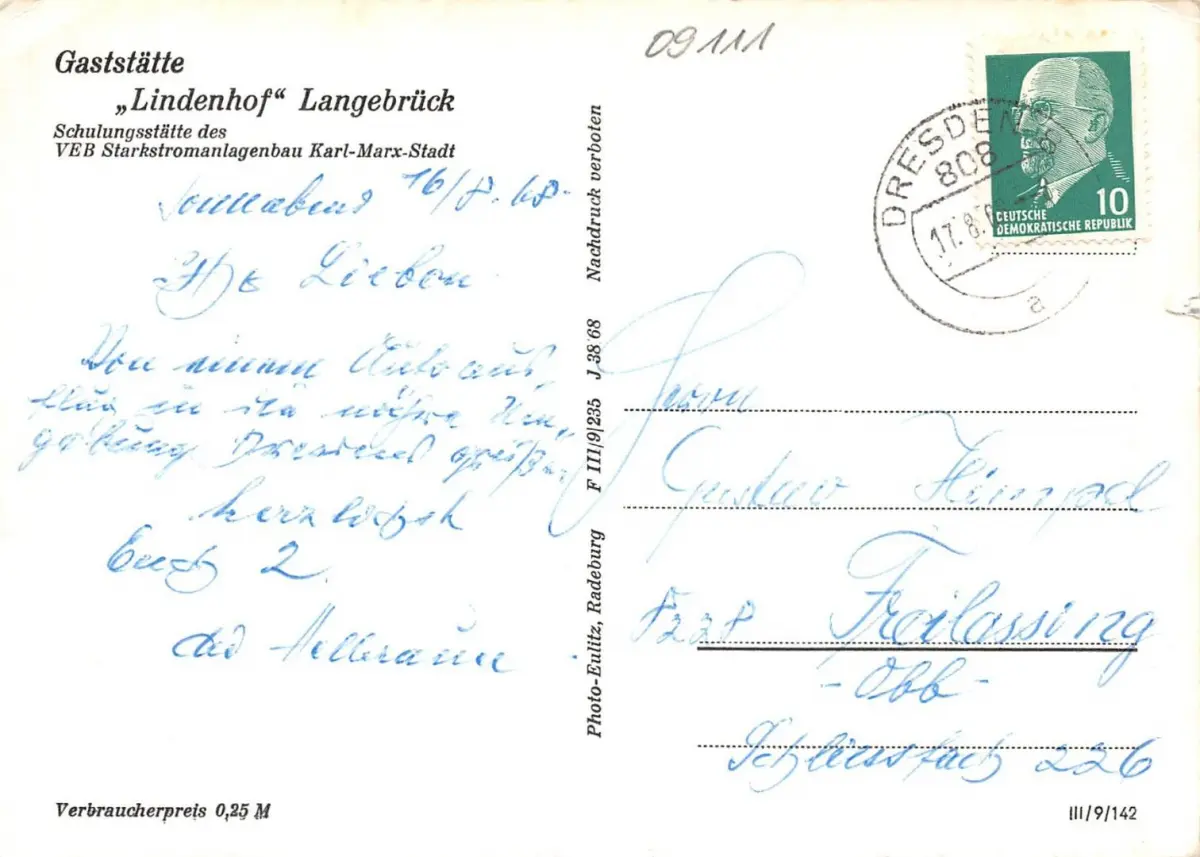 09111
Gaststätte
„Lindenhof“ Langebrück
Schulungsstätte des
VEB Starkstromanlagenbau Karl-Marx-Stadt
Sonnabend 16/8.68
Ihr Lieben
Von einem Autoaus-
flug in die nähre Um-
gebung Dresdens grüßen
herzlichst
Euch 2
Verbraucherpreis 0,25 M
Photo-Eulitz, Radeburg F III/9/235 J 38 68 Nachdruck verboten
DRESDEN
808
17.8.68
a
10
DEUTSCHE
DEMOKRATISCHE REPUBLIK
Herrn
Gustav
8228 Freilassing
-Obb-
Schliessfach 226
III/9/142